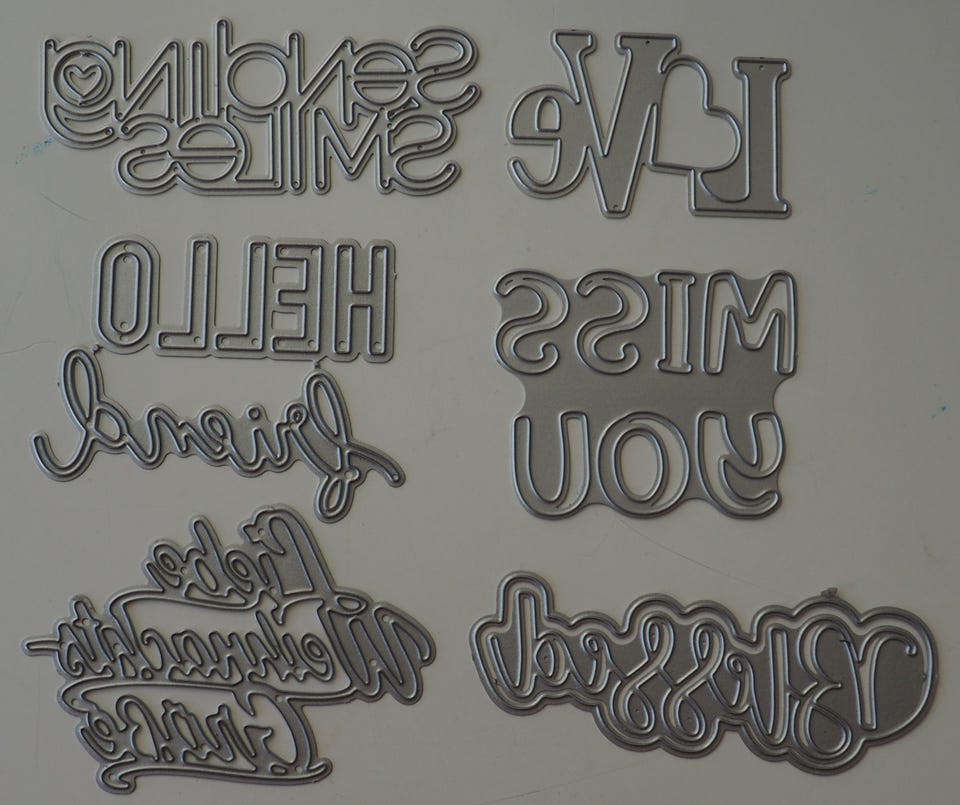 SeNdiNg
SMiLeS
LVe
HELLO
friend
MISS
YOU
Liebe
Weihnachts-
Grüße
Blessed